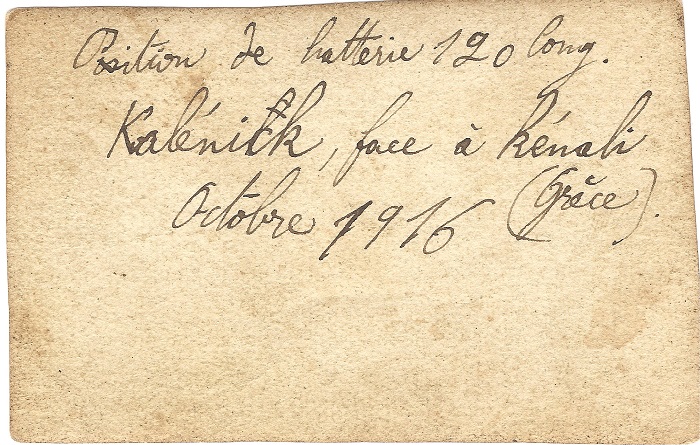 Position de batterie 120 long.
Kalénitk, face à Kénali
Octobre 1916 (Grèce).